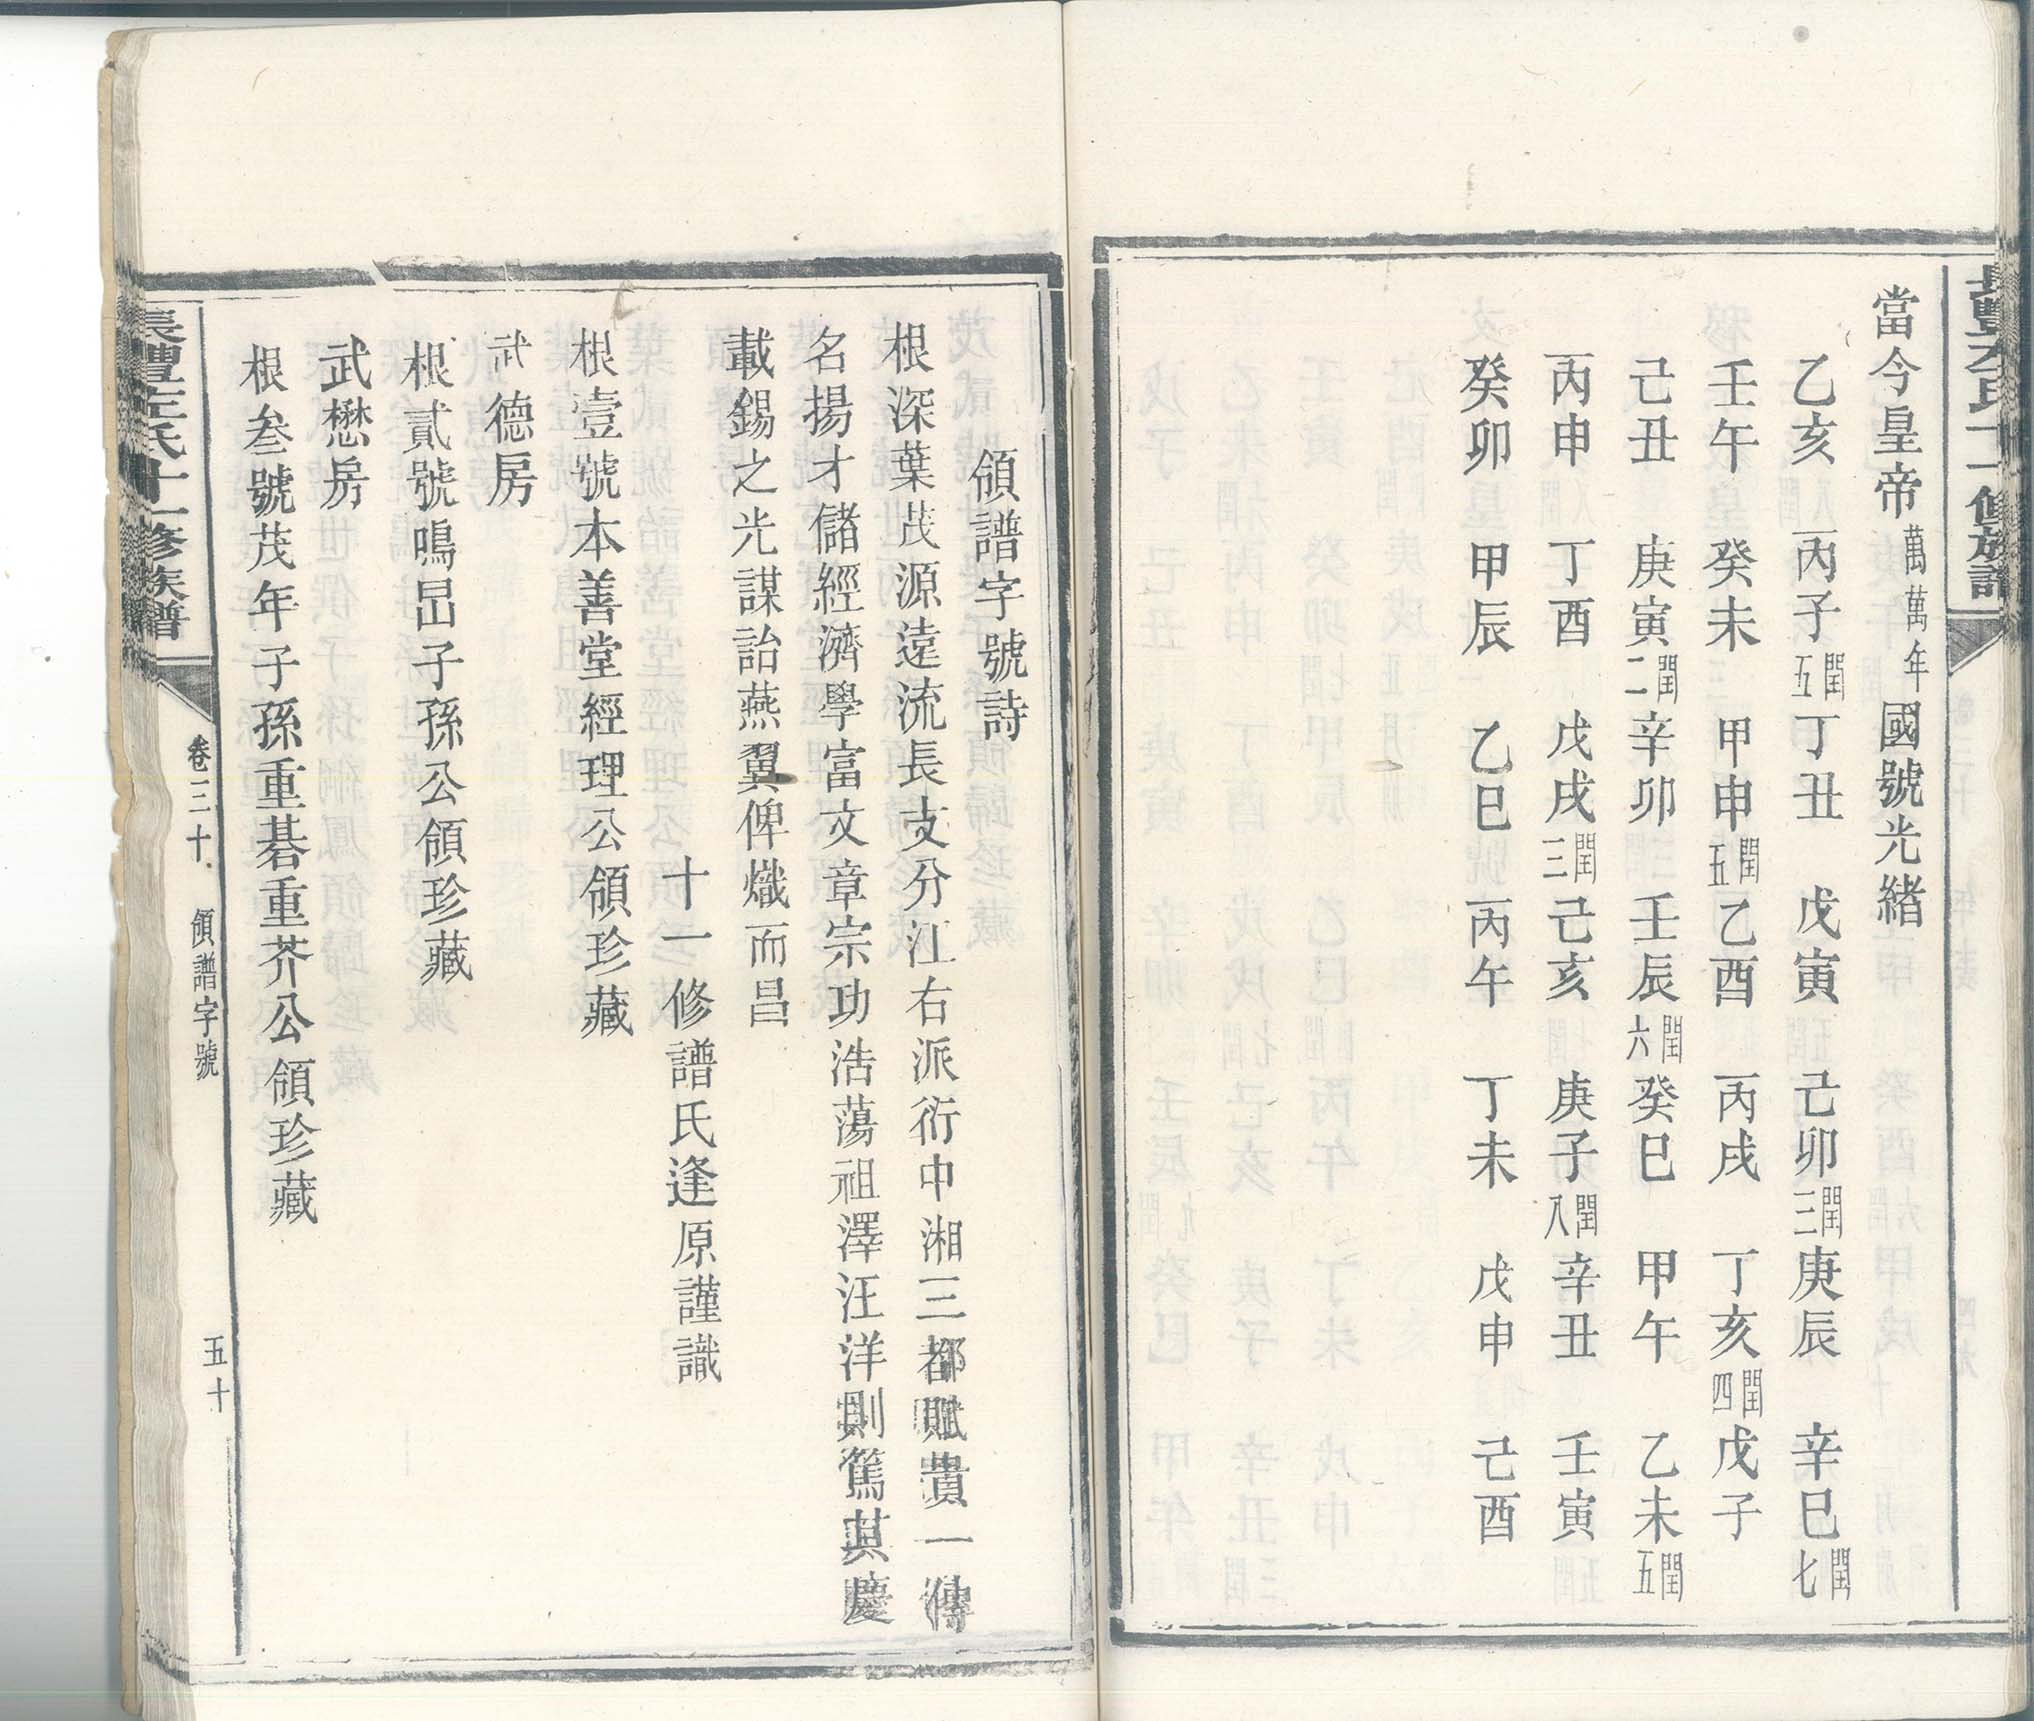 當今皇帝萬萬年國號光緒
乙亥 丙子閏五丁丑 戊寅 己卯閏三庚辰 辛巳閏七
壬午 癸未 甲申閏五乙酉 丙戌 丁亥閏四戊子
己丑 庚寅閏二辛卯 壬辰閏六癸巳 甲午 乙未閏五
丙申 丁酉 戊戌閏三己亥 庚子閏八辛丑 壬寅
癸卯 甲辰 乙巳 丙午 丁未 戊申 己酉
領譜字號詩
根深葉茂源遠流長支分江右派衍中湘三都賦貴一傳
名揚才儲經濟學富文章宗功浩蕩祖澤汪洋則篤其慶
載錫之光謀詒燕翼俾熾而昌
十一修譜氏逢原謹識
根壹號本善堂經理公領珍藏
武德房
根貳號鳴岊子孫公領珍藏
武懋房
根叁號茂年子孫重碁重芥公領珍藏
長澧左氏十一修族譜
卷三十 領譜字號 五十